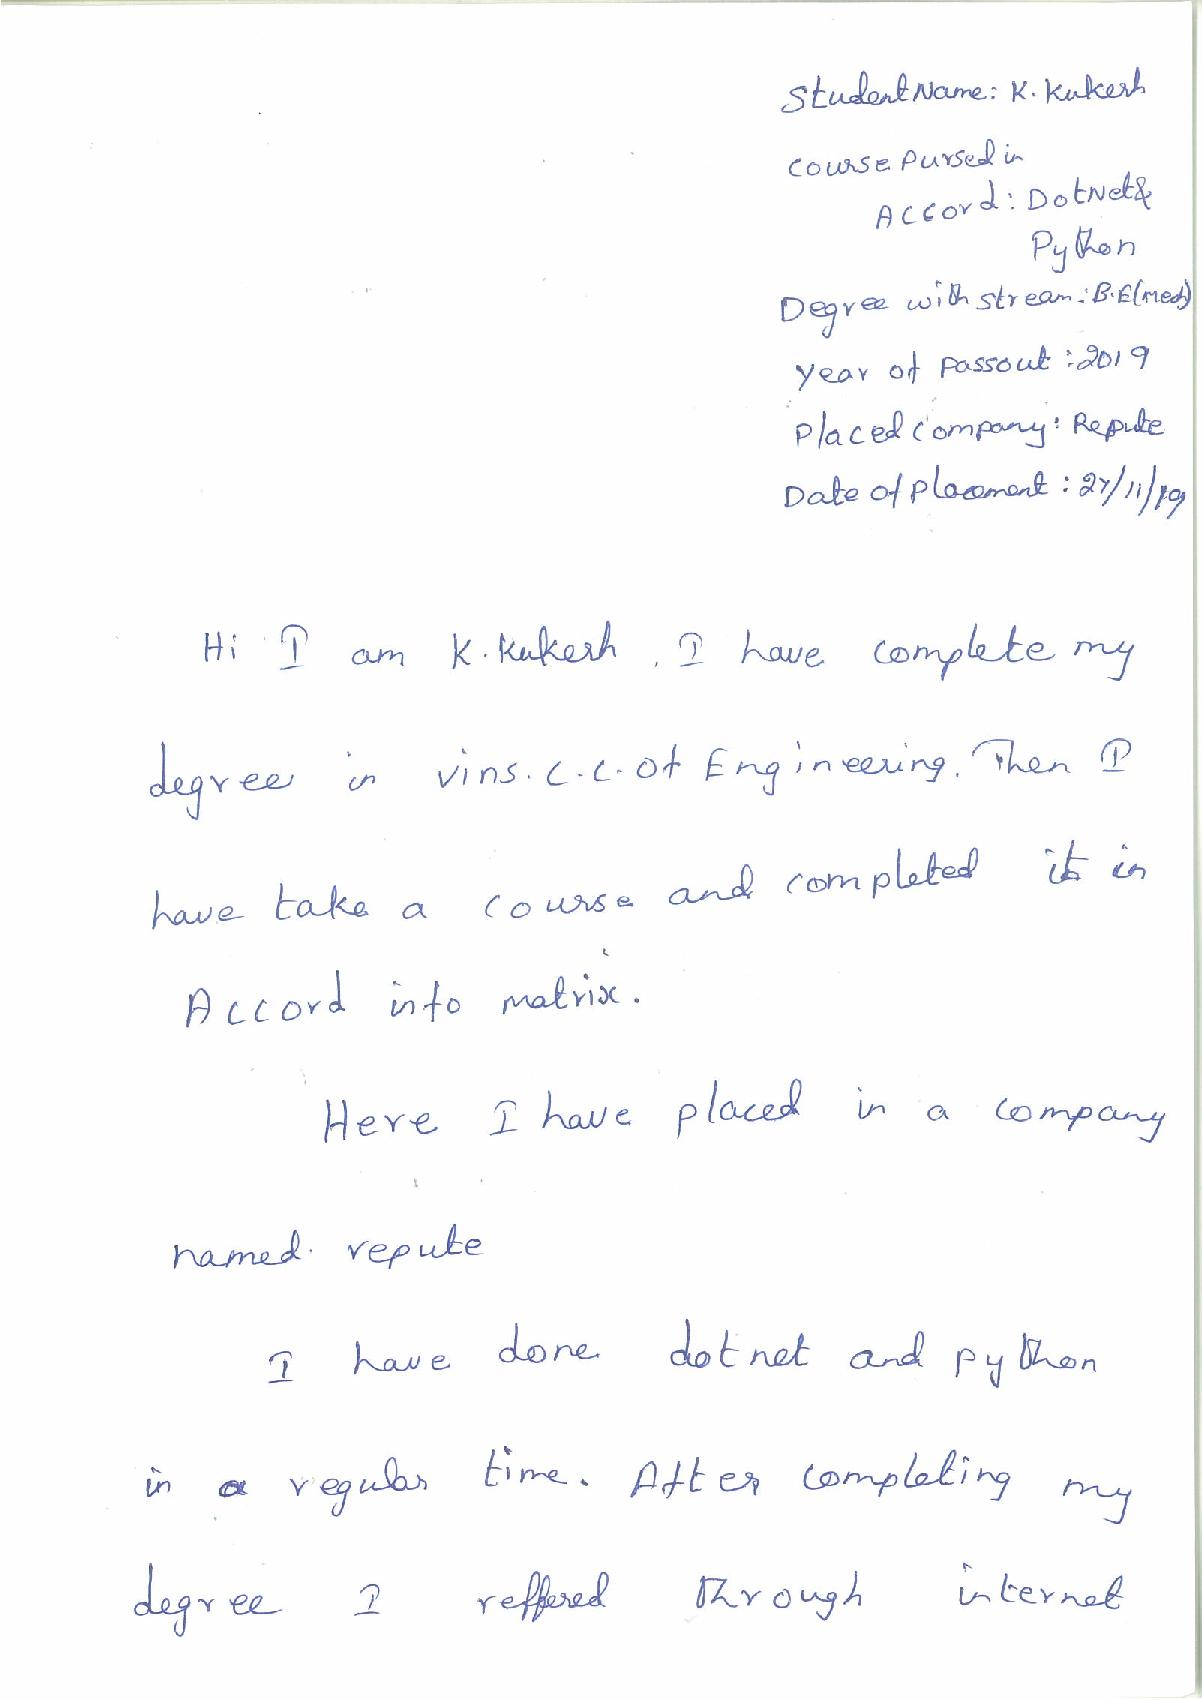 Student Name: K. Kukesh
Course Pursed in
Accord: DotNet &
Python
Degree with stream: B.E(mech)
Year of Passout: 2019
Placed Company: Repute
Date of placement: 27/11/19
Hi I am K. Kukesh, I have complete my
degree in vins. C. C. of Engineering. Then I
have take a course and completed it in
Accord info matrix.
Here I have placed in a company
named. repute
I have done dotnet and python
in a regular time. After completing my
degree I reffered through internet